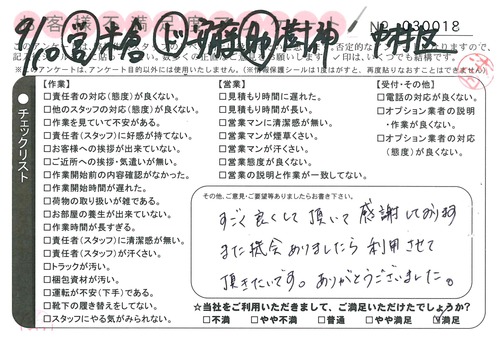 9/10 宮 米倉 ド 安藤 助 樹神 中村区
No 030018
※このアンケートは、アンケート目的以外には使用いたしません。(※情報保護シールは1度はがすと、再度貼りなおすことはできません)
チェックリスト
【作業】
□責任者の対応(態度)が良くない。
□他のスタッフの対応(態度)が良くない。
□作業を見ていて不安がある。
□責任者(スタッフ)に好感が持てない。
□お客様への挨拶が出来ていない。
□ご近所への挨拶・気遣いが無い。
□作業開始前の内容確認がなかった。
□作業開始時間が遅れた。
□荷物の取り扱いが雑である。
□お部屋の養生が出来ていない。
□作業時間が長すぎる。
□責任者(スタッフ)に清潔感が無い。
□責任者(スタッフ)が汗くさい。
□トラックが汚い。
□梱包資材が汚い。
□運転が不安(下手)である。
□靴下の履き替えをしてない。
□スタッフにやる気がみられない。
【営業】
□見積もり時間に遅れた。
□見積もり時間が長い。
□営業マンに清潔感が無い。
□営業マンが煙草くさい。
□営業マンが汗くさい。
□営業態度が良くない。
□営業の説明と作業が一致してない。
【受付・その他】
□電話の対応が良くない。
□オプション業者の説明
・作業が良くない。
□オプション業者の対応
(態度)が良くない。
その他、ご意見・ご要望等ありましたらお書き下さい。
すごく良くして頂いて感謝しております
また機会ありましたら利用させて
頂きたいです。ありがとうございました。
☆当社をご利用いただきまして、ご満足いただけたでしょうか?
□不満 □やや不満 □普通 □やや満足 ☑満足